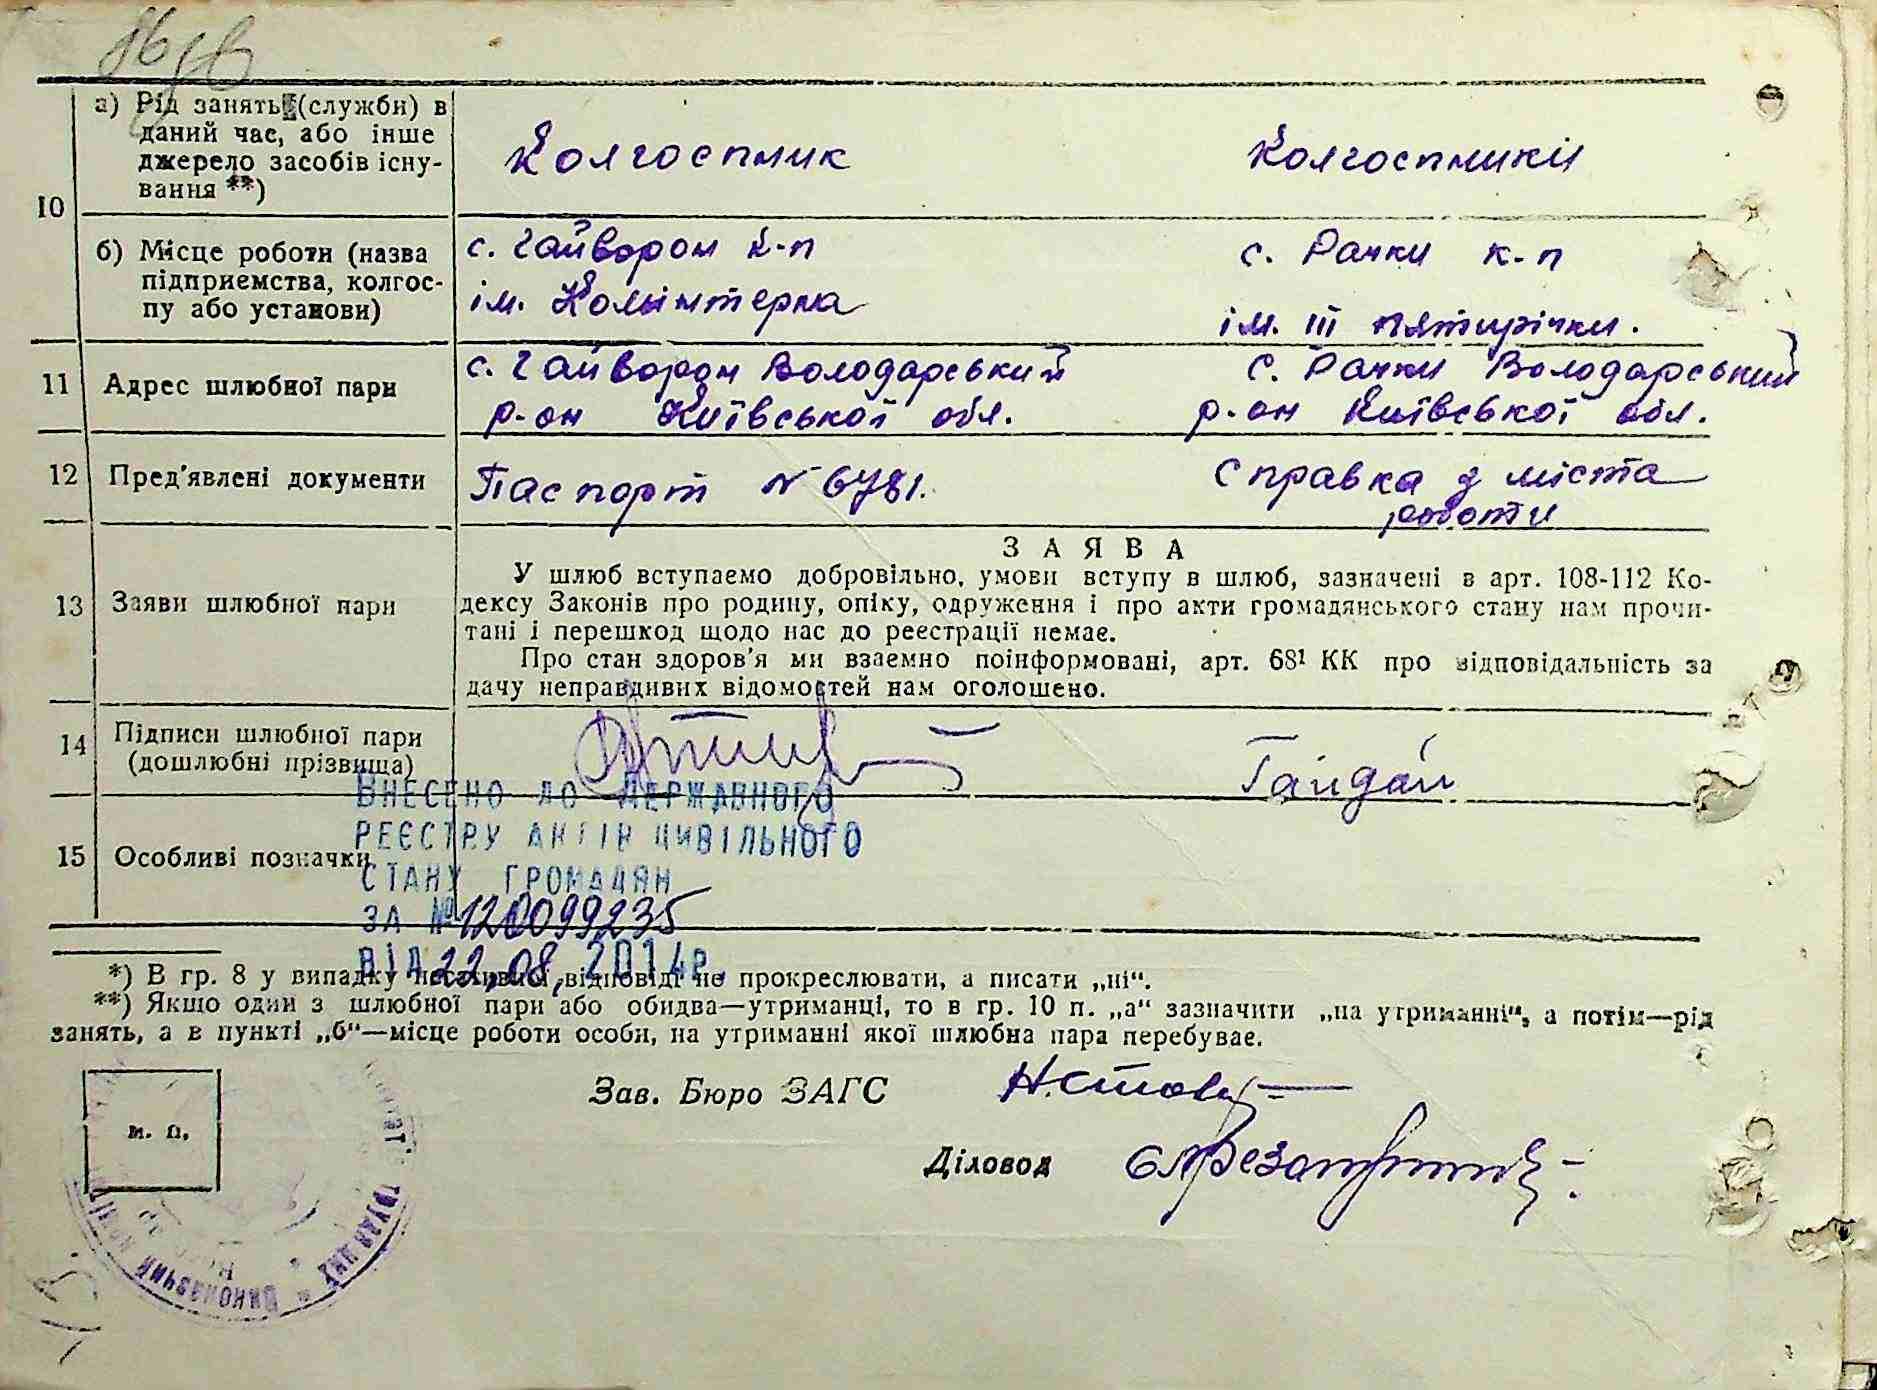 10
а) Рід занять (служби) в
даний час, або інше
джерело засобів існу-
вання **)
Колгоспник
Колгоспники
б) Місце роботи (назва
підприємства, колгос-
пу або установи)
с. Гайворон к-п
ім. Комінтерна
с. Рачки к-п
ім. III пятирічки.
11
Адрес шлюбної пари
с. Гайворон Володарський
р-он Київської обл.
с. Рачки Володарський
р-он Київської обл.
12
Пред'явлені документи
Паспорт № 6781.
Справка з міста
роботи
13
Заяви шлюбної пари
ЗАЯВА
У шлюб вступаємо добровільно, умови вступу в шлюб, зазначені в арт. 108-112 Ко-
дексу Законів про родину, опіку, одруження і про акти громадянського стану нам прочи-
тані і перешкод щодо нас до реєстрації немає.
Про стан здоров'я ми взаємно поінформовані, арт. 68¹ КК про відповідальність за
дачу неправдивих відомостей нам оголошено.
14
Підписи шлюбної пари
(дошлюбні прізвища)
Гайдай
15
Особливі позначки
ВНЕСЕНО ДО ДЕРЖАВНОГО
РЕЄСТРУ АКТІВ ЦИВІЛЬНОГО
СТАНУ ГРОМАДЯН
ЗА № 120099235
ВІД 22.08.2014р.
*) В гр. 8 у випадку негативної відповіді не прокреслювати, а писати „ні“.
**) Якщо один з шлюбної пари або обидва—утриманці, то в гр. 10 п. „а“ зазначити „на утриманні“, а потім—рід
занять, а в пункті „б“—місце роботи особи, на утриманні якої шлюбна пара перебуває.
м. п.
Зав. Бюро ЗАГС
Діловод
Виконавчий
трудящих